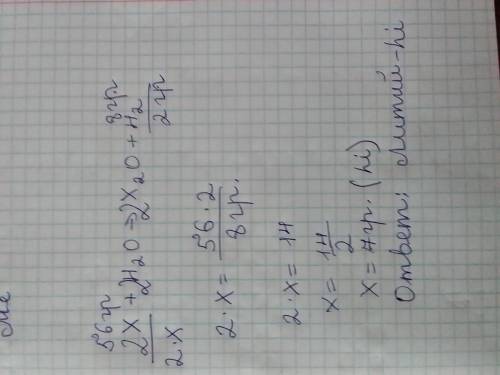 Me
56 гр 8 гр.
2X + 2H₂O → 2X₂O + H₂
2·X 2 гр
2·X = 56·2 / 8 гр.
2·X = 14
X = 14/2
X = 7 гр. (hi)
Ответ: Литий-hi